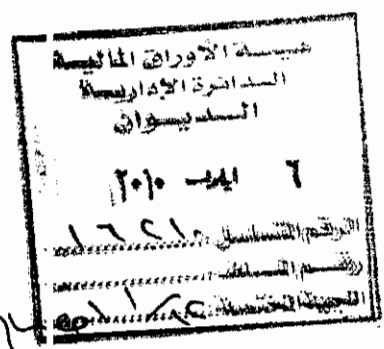 هيئة الأوراق المالية
الدائرة الإدارية
الديوان
٦ ٢٠١٠
الرقم المتسلسل ١٦٢١٠
رقم الملف
الجهة المختصة